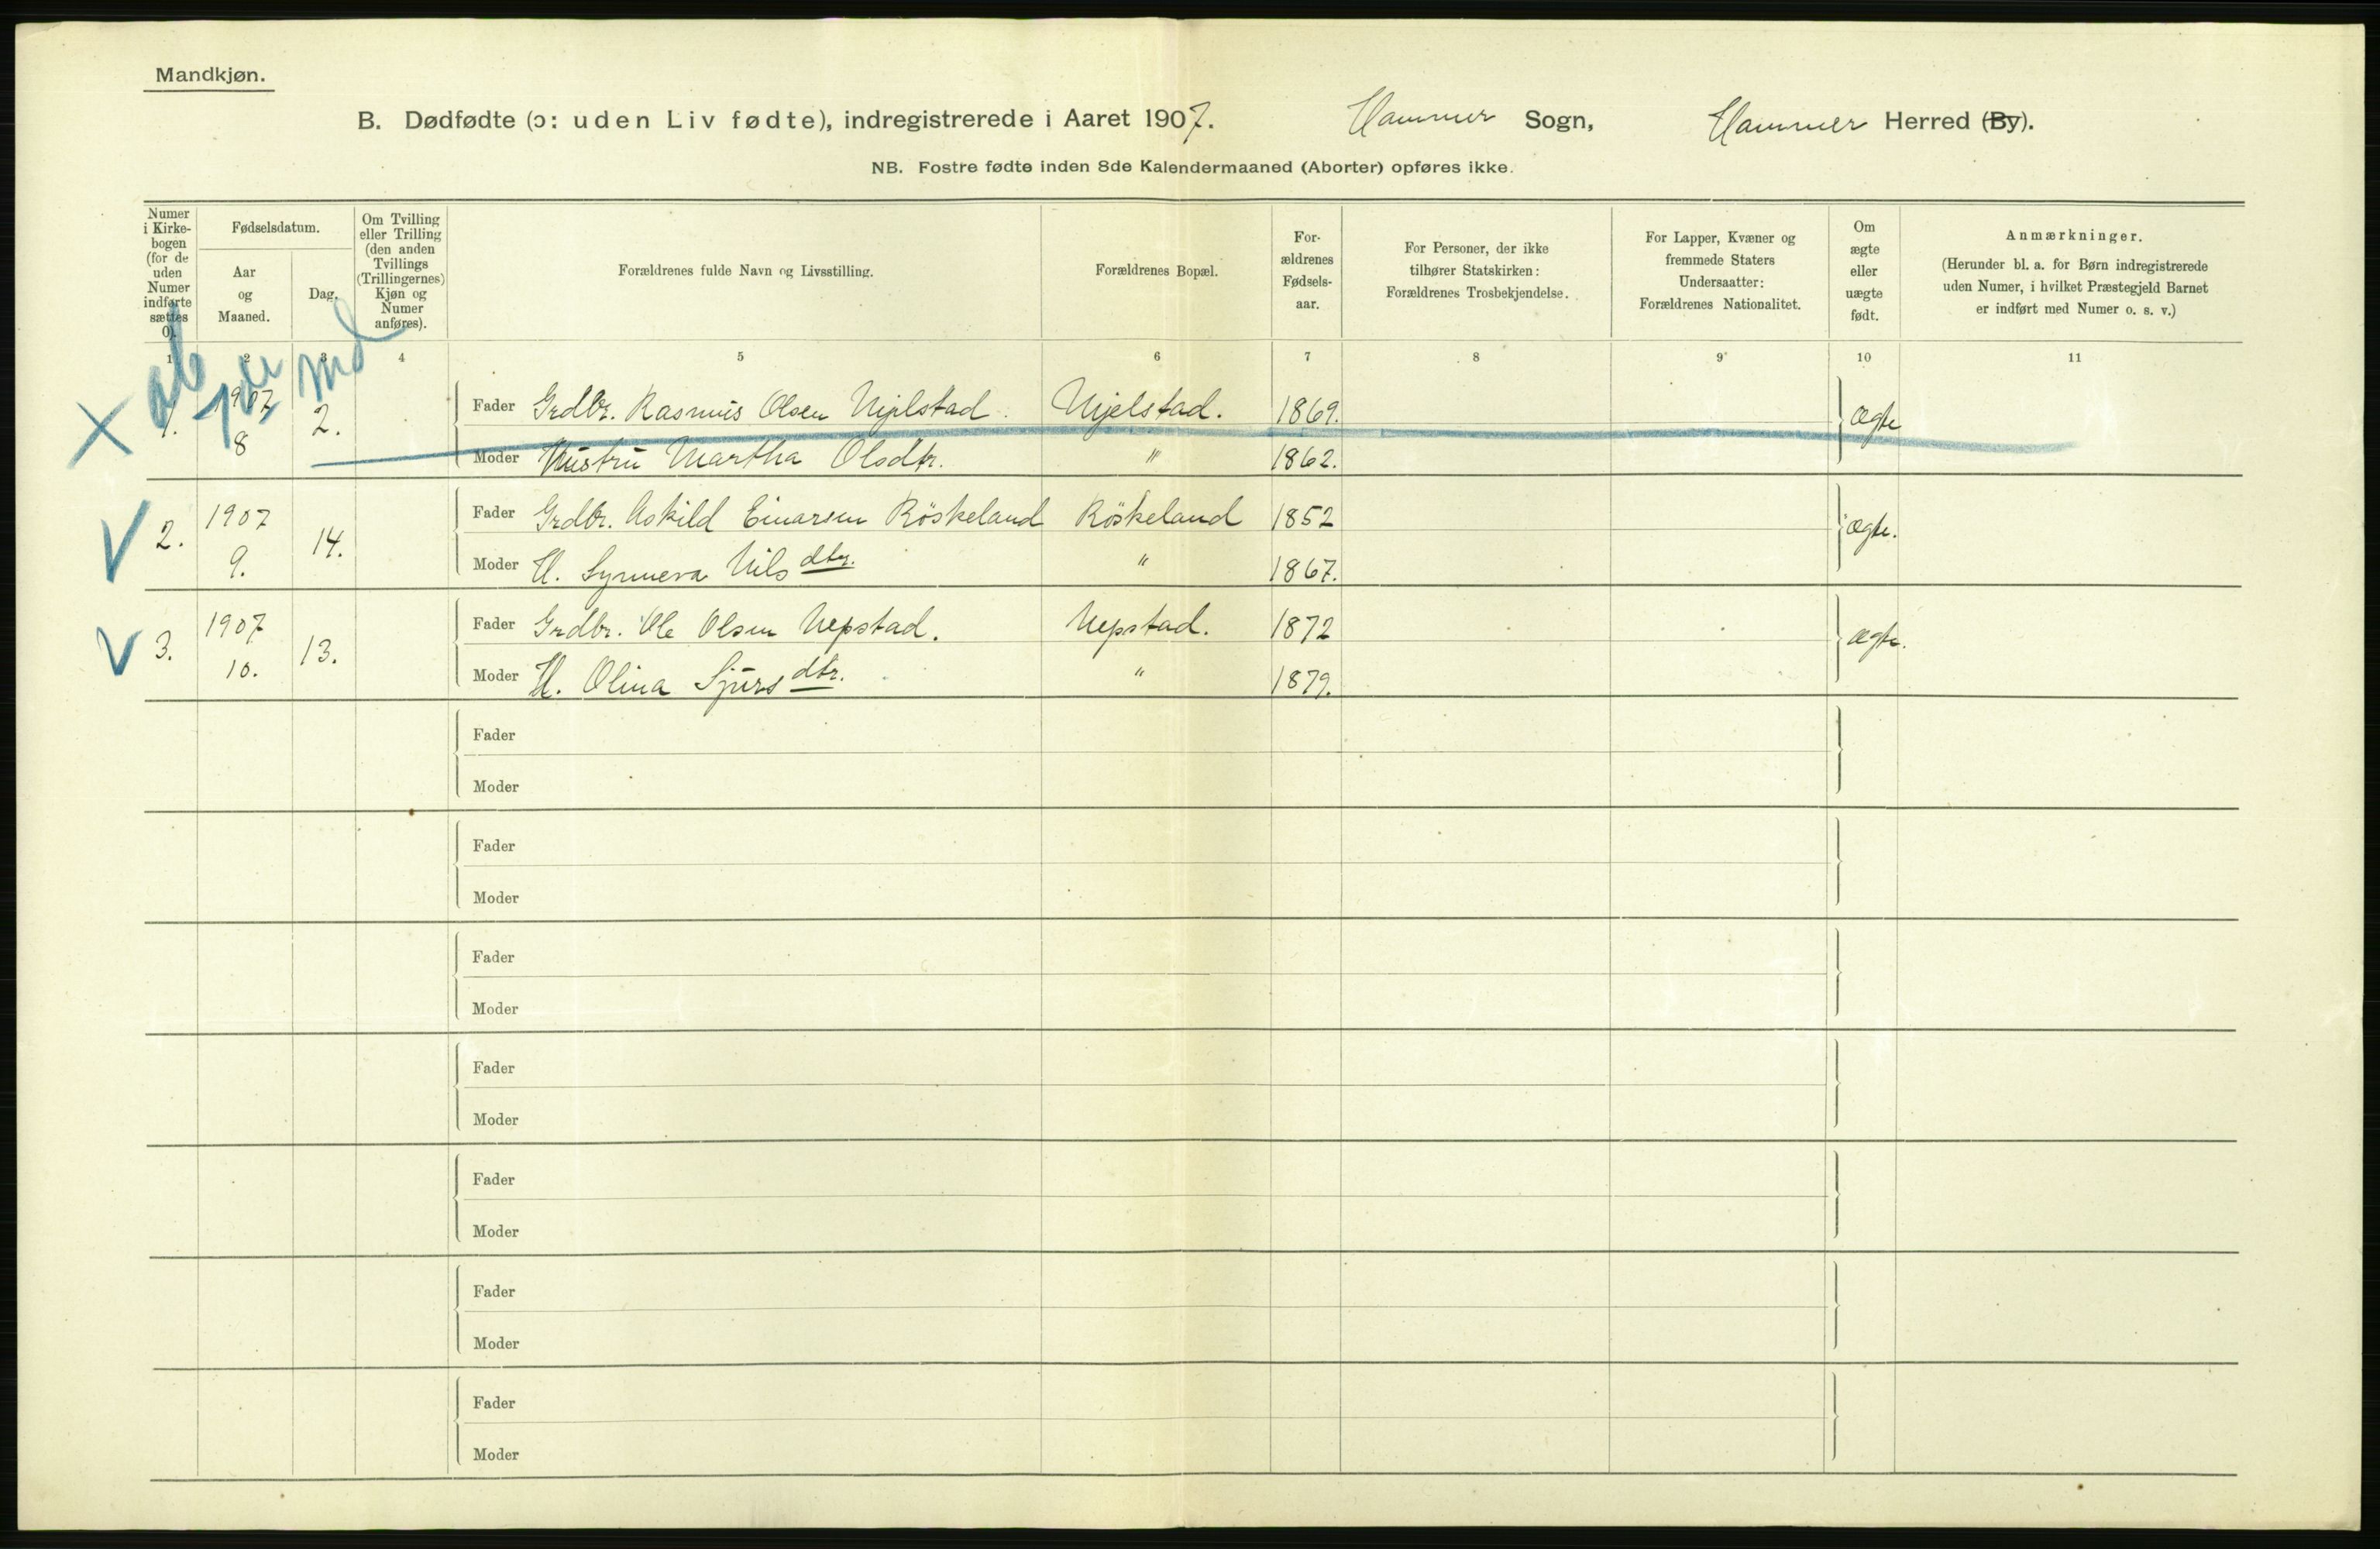 Mandkjøn.
B. Dødfødte (ɔ: uden Liv fødte), indregistrerede i Aaret 1907. Hammer Sogn, Hammer Herred (By).
NB. Fostre fødte inden 8de Kalendermaaned (Aborter) opføres ikke.
Numer i Kirke-bogen (for de uden Numer indførte sættes 0).
Fødselsdatum.
Aar og Maaned.
Dag.
Om Tvilling eller Trilling (den anden Tvillings (Trillingernes) Kjøn og Numer anføres).
Forældrenes fulde Navn og Livsstilling.
Forældrenes Bopæl.
For-ældrenes Fødsels-aar.
For Personer, der ikke tilhører Statskirken: Forældrenes Trosbekjendelse.
For Lapper, Kvæner og fremmede Staters Undersaatter: Forældrenes Nationalitet.
Om ægte eller uægte født.
Anmærkninger.
(Herunder bl. a. for Børn indregistrerede uden Numer, i hvilket Præstegjeld Barnet er indført med Numer o. s. v.)
1 2 3 4 5 6 7 8 9 10 11
1. 1907 8 2. Fader Grdbr. Rasmus Olsen Mjelstad. Mjelstad. 1869. ægte
Moder Hustru Martha Olsdtr. " 1862.
2. 1907 9. 14. Fader Grdbr. Askild Einarsen Röskeland Röskeland 1852 ægte.
Moder H. Synneva Nilsdtr. " 1867.
3. 1907 10. 13. Fader Grdbr. Ole Olsen Nepstad. Nepstad. 1872 ægte.
Moder H. Olina Sjursdtr. " 1879.
Fader
Moder
Fader
Moder
Fader
Moder
Fader
Moder
Fader
Moder
Fader
Moder
Fader
Moder